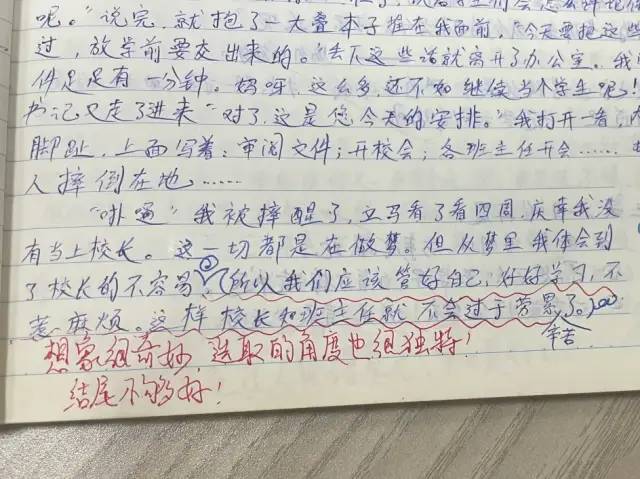 呢。"说完,就抱了一大叠本子堆在我面前,"今天要把这些
过,放学前要交出来的。"丢下这些话就离开了办公室。我
件足足有一分钟。妈呀,这么多,还不如继续当个学生呢!
书记又走了进来"对了,这是您今天的安排。"我打开一看,
脚趾,上面写着:审阅文件;开校会;各班主任开会……
人摔倒在地……
"扑通"我被摔醒了,立马看了看四周,庆幸我没
有当上校长。这一切都是在做梦。但从梦里我体会到
了校长的不容易,所以我们应该管好自己,好好学习,不
惹麻烦。这样校长和班主任就不会过于劳累了。
辛苦
想象很奇妙,选取的角度也很独特!
结尾不够好!